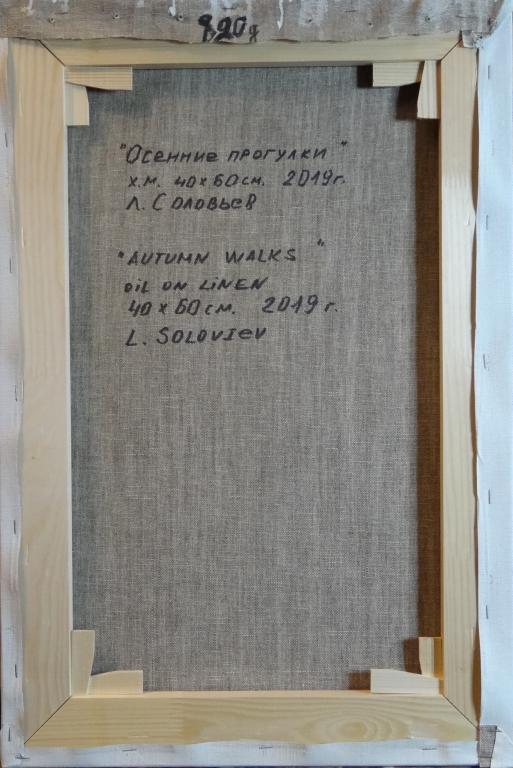 820g
"Осенние прогулки"
х.м. 40 х 60 см. 2019 г.
Л. Соловьев
"AUTUMN WALKS"
OIL ON LINEN
40 x 60 см. 2019 г.
L. SOLOVIEV